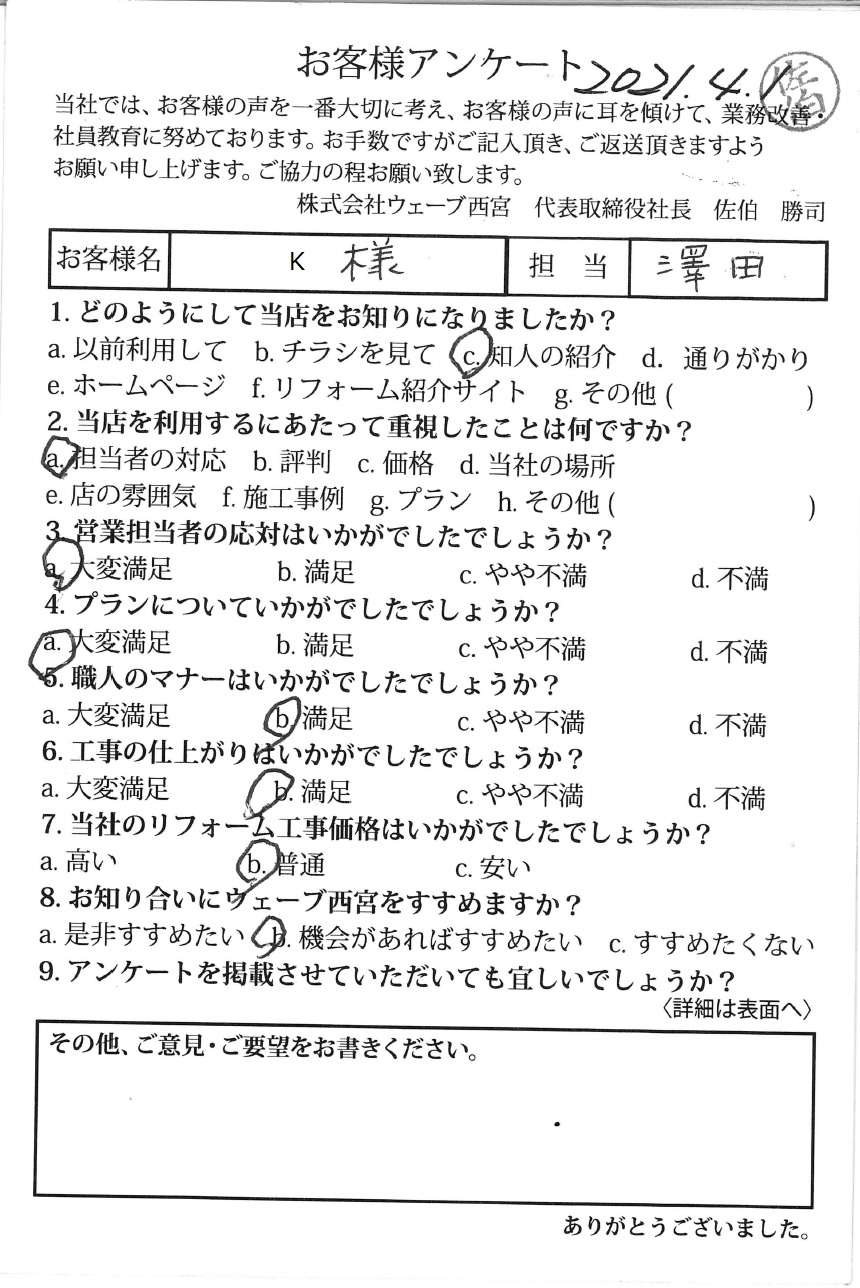 お客様アンケート 2021.4.1 佐伯
当社では、お客様の声を一番大切に考え、お客様の声に耳を傾けて、業務改善・
社員教育に努めております。お手数ですがご記入頂き、ご返送頂きますよう
お願い申し上げます。ご協力の程お願い致します。
株式会社ウェーブ西宮 代表取締役社長 佐伯 勝司
お客様名 K 様 担当 澤田
1. どのようにして当店をお知りになりましたか？
a. 以前利用して b. チラシを見て c. 知人の紹介 d. 通りがかり
e. ホームページ f. リフォーム紹介サイト g. その他 ( )
2. 当店を利用するにあたって重視したことは何ですか？
a. 担当者の対応 b. 評判 c. 価格 d. 当社の場所
e. 店の雰囲気 f. 施工事例 g. プラン h. その他 ( )
3. 営業担当者の応対はいかがでしたでしょうか？
a. 大変満足 b. 満足 c. やや不満 d. 不満
4. プランについていかがでしたでしょうか？
a. 大変満足 b. 満足 c. やや不満 d. 不満
5. 職人のマナーはいかがでしたでしょうか？
a. 大変満足 b. 満足 c. やや不満 d. 不満
6. 工事の仕上がりはいかがでしたでしょうか？
a. 大変満足 b. 満足 c. やや不満 d. 不満
7. 当社のリフォーム工事価格はいかがでしたでしょうか？
a. 高い b. 普通 c. 安い
8. お知り合いにウェーブ西宮をすすめますか？
a. 是非すすめたい b. 機会があればすすめたい c. すすめたくない
9. アンケートを掲載させていただいても宜しいでしょうか？
〈詳細は表面へ〉
その他、ご意見・ご要望をお書きください。
ありがとうございました。